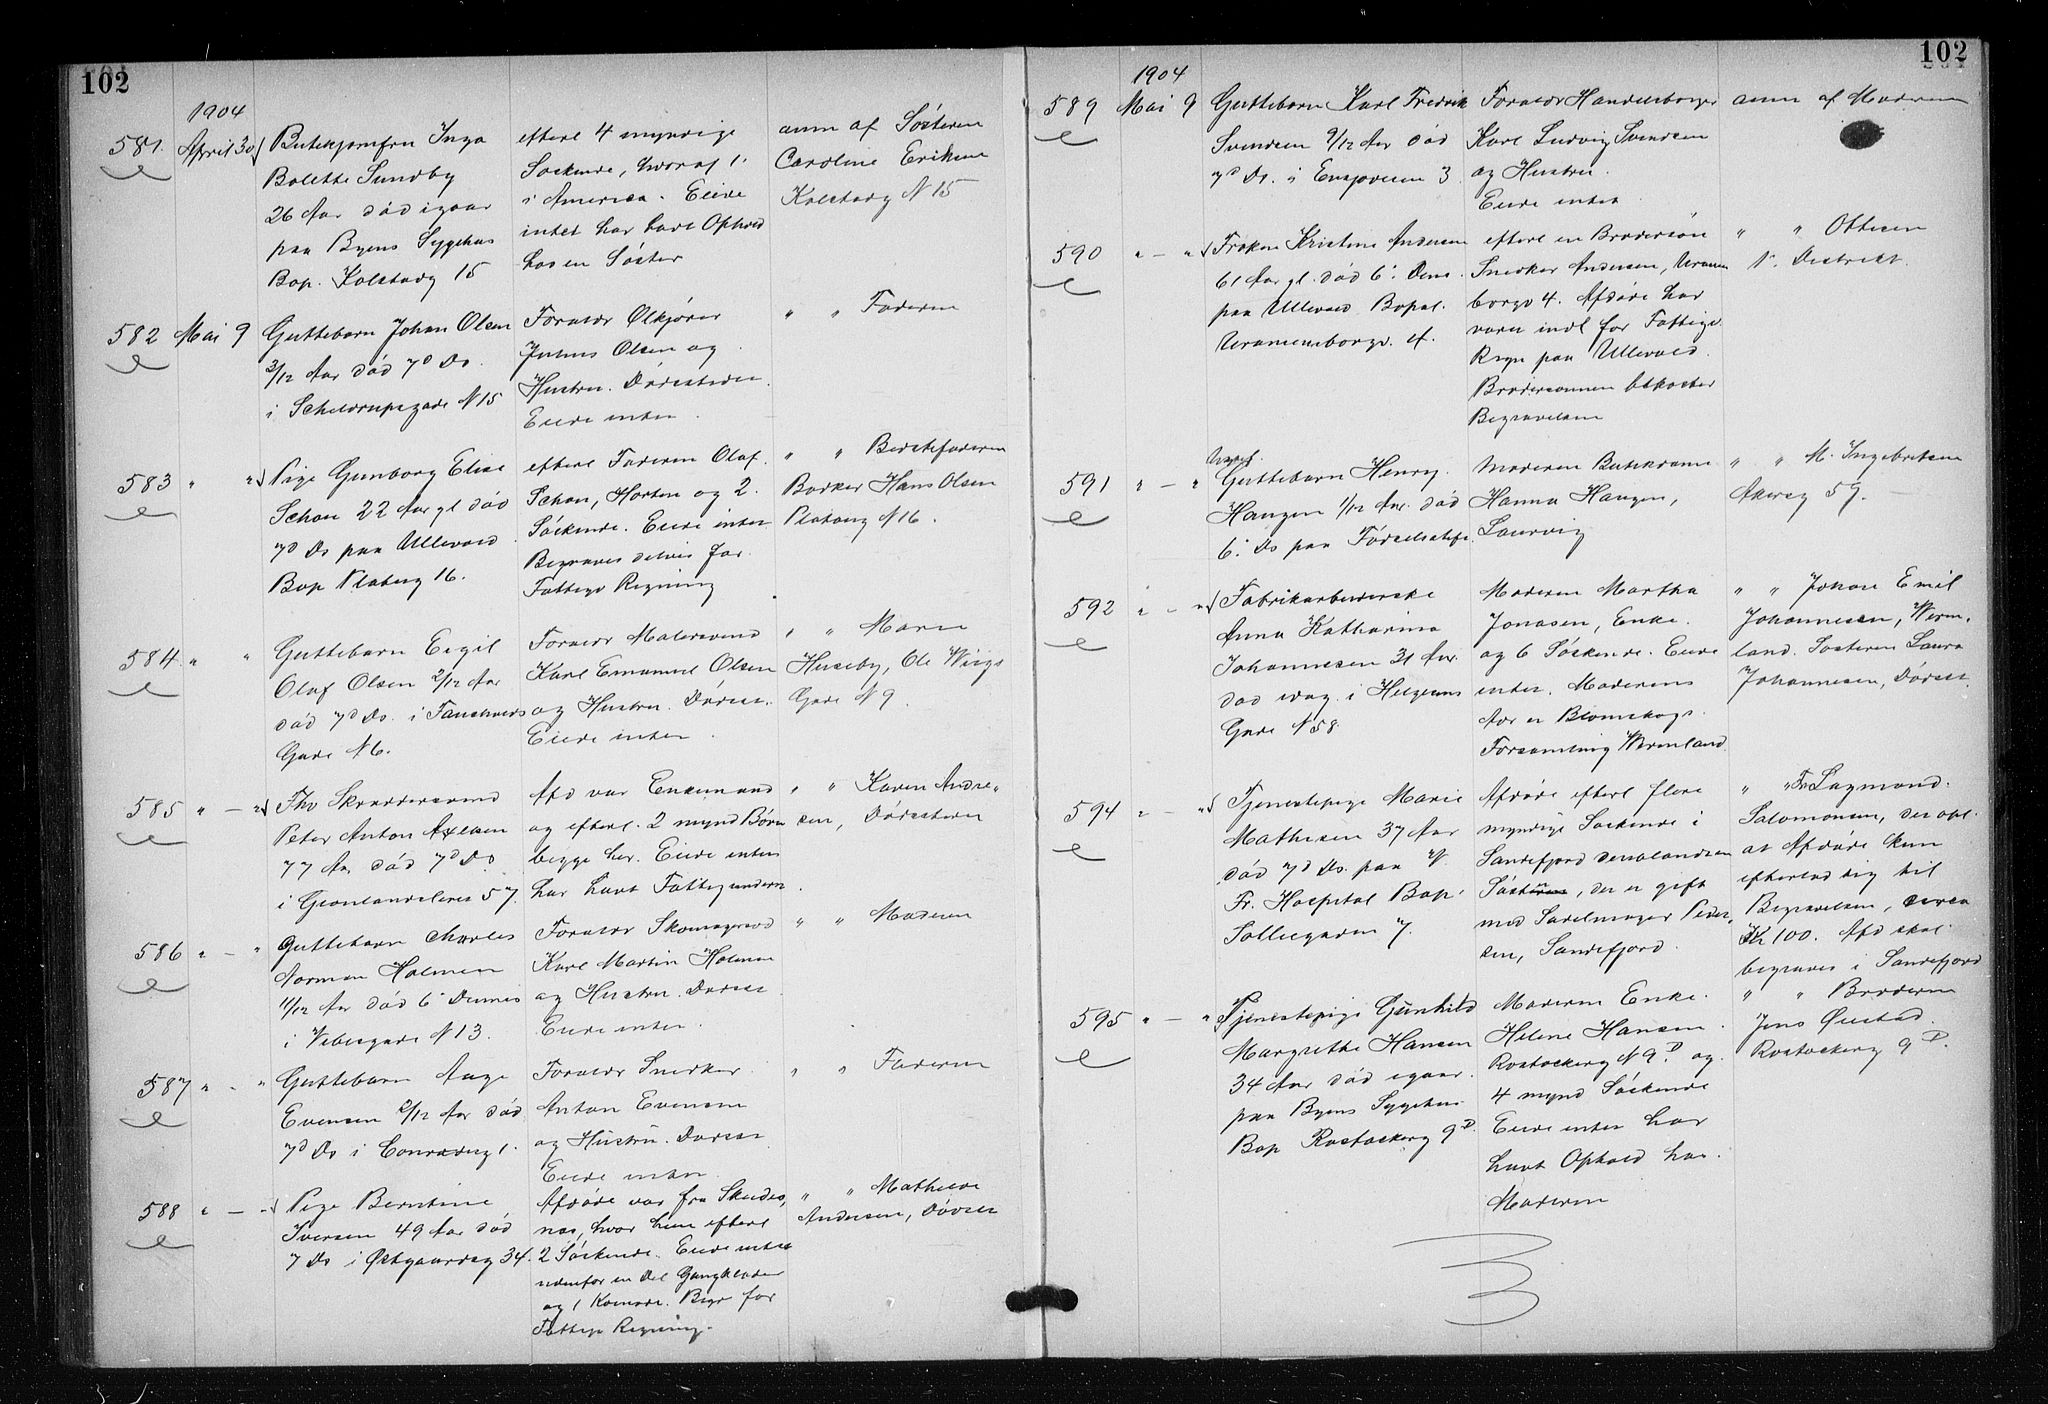 102
1904
581. April 30 Butikjomfru Inga
Bolette Sundby
26 Aar død igaar
paa Byens Sygehus
Bop. Kolstadg 15
efterl 4 myndige
Søskende, hvoraf 1
i America. Eiede
intet har havt Ophold
hos en Søster
anm af Søsteren
Caroline Eriksen
Kolstadg N 15
582 Mai 9 Guttebarn Johan Olsen
3/12 Aar død 7d Ds.
i Scheldrupsgade N 15
Forældr Ølkjører
Julius Olsen og
Hustru. Dødsstedet.
Eiede intet.
" " Faderen
583 " " Pige Gunborg Elise
Schou 22 Aar gl død
7d Ds paa Ullevold
Bop Platoug 16.
efterl Faderen Olaf
Schou, Horten og 2
Søskende. Eiede intet
Begraves delvis for
Fattigv Regning
" " Bedstefaderen
Barker Hans Olsen
Platoug N 16.
584 " " Guttebarn Eigil
Olaf Olsen 2/12 Aar
død 7d Ds. i Fauchalds
Gade N 6.
Forældr Malersvend
Karl Emanuel Olsen
og Hustru. Dødsst.
Eiede intet.
" " Maren
Huseby, Ole Wiigs
Gade N 9.
585 " — " Fhv Skræddersvend
Peter Anton Axelsen
77 Aar død 7d Ds
i Grønlandsleret 57.
Afd var Enkemand
og efterl. 2 mynd Børn
begge her. Eiede intet
har havt Fattigunderst.
" " Karen Andre-
sen, Dødsstedet
586 " — " Guttebarn Charles
Norman Holmen
11/12 Aar død 6 Dennes
i Vibesgade N 13.
Forældr Skomagersvd
Karl Martin Holmen
og Hustru. Dødsst
Eiede intet.
" " Moderen
587 " - " Guttebarn Aage
Evensen 2/12 Aar død
7d Ds i Conradisg 1.
Forældr Snedker
Anton Evensen
og Hustru. Dødsst
Eiede intet
" " Faderen
588 " — " Pige Berntine
Iversen 49 Aar død
7 Ds i Østgaardsg 34.
Afdøde var fra Skudes-
næs, hvor hun efterl
2 Søskende. Eiede intet
udenfor en Del Gangklæder
og 1 Komode. Begr for
Fattigv Regning.
" " Mathilde
Andersen, Dødsst
102
1904
589 Mai 9 Guttebarn Karl Fredrik
Svendsen 9/12 Aar død
7d Ds. i Ensjøveien 3
Forældr Handelsborger
Karl Ludvig Svendsen
og Hustru.
Eiede intet
anm af Moderen
590 " — " Frøken Kristine Andersen
61 Aar gl. død 6' Dens.
paa Ullevold Bopæl.
Uranienborgv. 4.
efterl en Brodersøn
Snedker Andersen, Uranien
borgv 4. Afdøde har
været indl for Fattigv.
Regn paa Ullevold.
Brodersønnen bekoster
Begravelsen
" " Ottesen
1'. Distrikt.
591 " — " Guttebarn Henry
Haugen 1/12 Aar. død
6' Ds paa Fødselsstift.
Moderen Butikdame
Hanna Haugen,
Laurvig
" " M. Ingebretsen
Akersg 59. —
592 " — " Fabrikarbeiderske
Anna Katharina
Johannesen 31 Aar.
død idag i Helgesens
Gade N 58
Moderen Martha
Jonasen, Enke.
og 6 Søskende. Eiede
intet. Moderens
Adr er Blomskogs
Forsamling Wermland.
" " Johan Emil
Johannesen, Werm-
land. Søsteren Laura
Johannesen, Dødsst.
594 " — " Tjenestepige Marie
Mathisen 37 Aar
død 7d Ds. paa V.
Fr. Hospital Bop.
Solliegaden 7.
Afdøde efterl flere
myndige Søskende i
Sandefjord
Søster, der er gift
med Sadelmager Peder-
sen, Sandefjord.
" " Fr Lazmond.
Salomonsen, der opl.
at Afdøde kun
efterlod sig til
Begravelsen, circa
Kr 100. Afd skal
begraves i Sandefjord
595 " — " Tjenestepige Gunhild
Margrethe Hansen
34 Aar død igaar.
paa Byens Sygehus
Bop Rostockerg 9D.
Moderen Enke.
Helene Hansen.
Rostockerg N 9D. og
4 mynd Søskende
Eiede intet har
havt Ophold hos
Moderen
" " Broderen
Jens Øustad.
Rostockerg 9D.